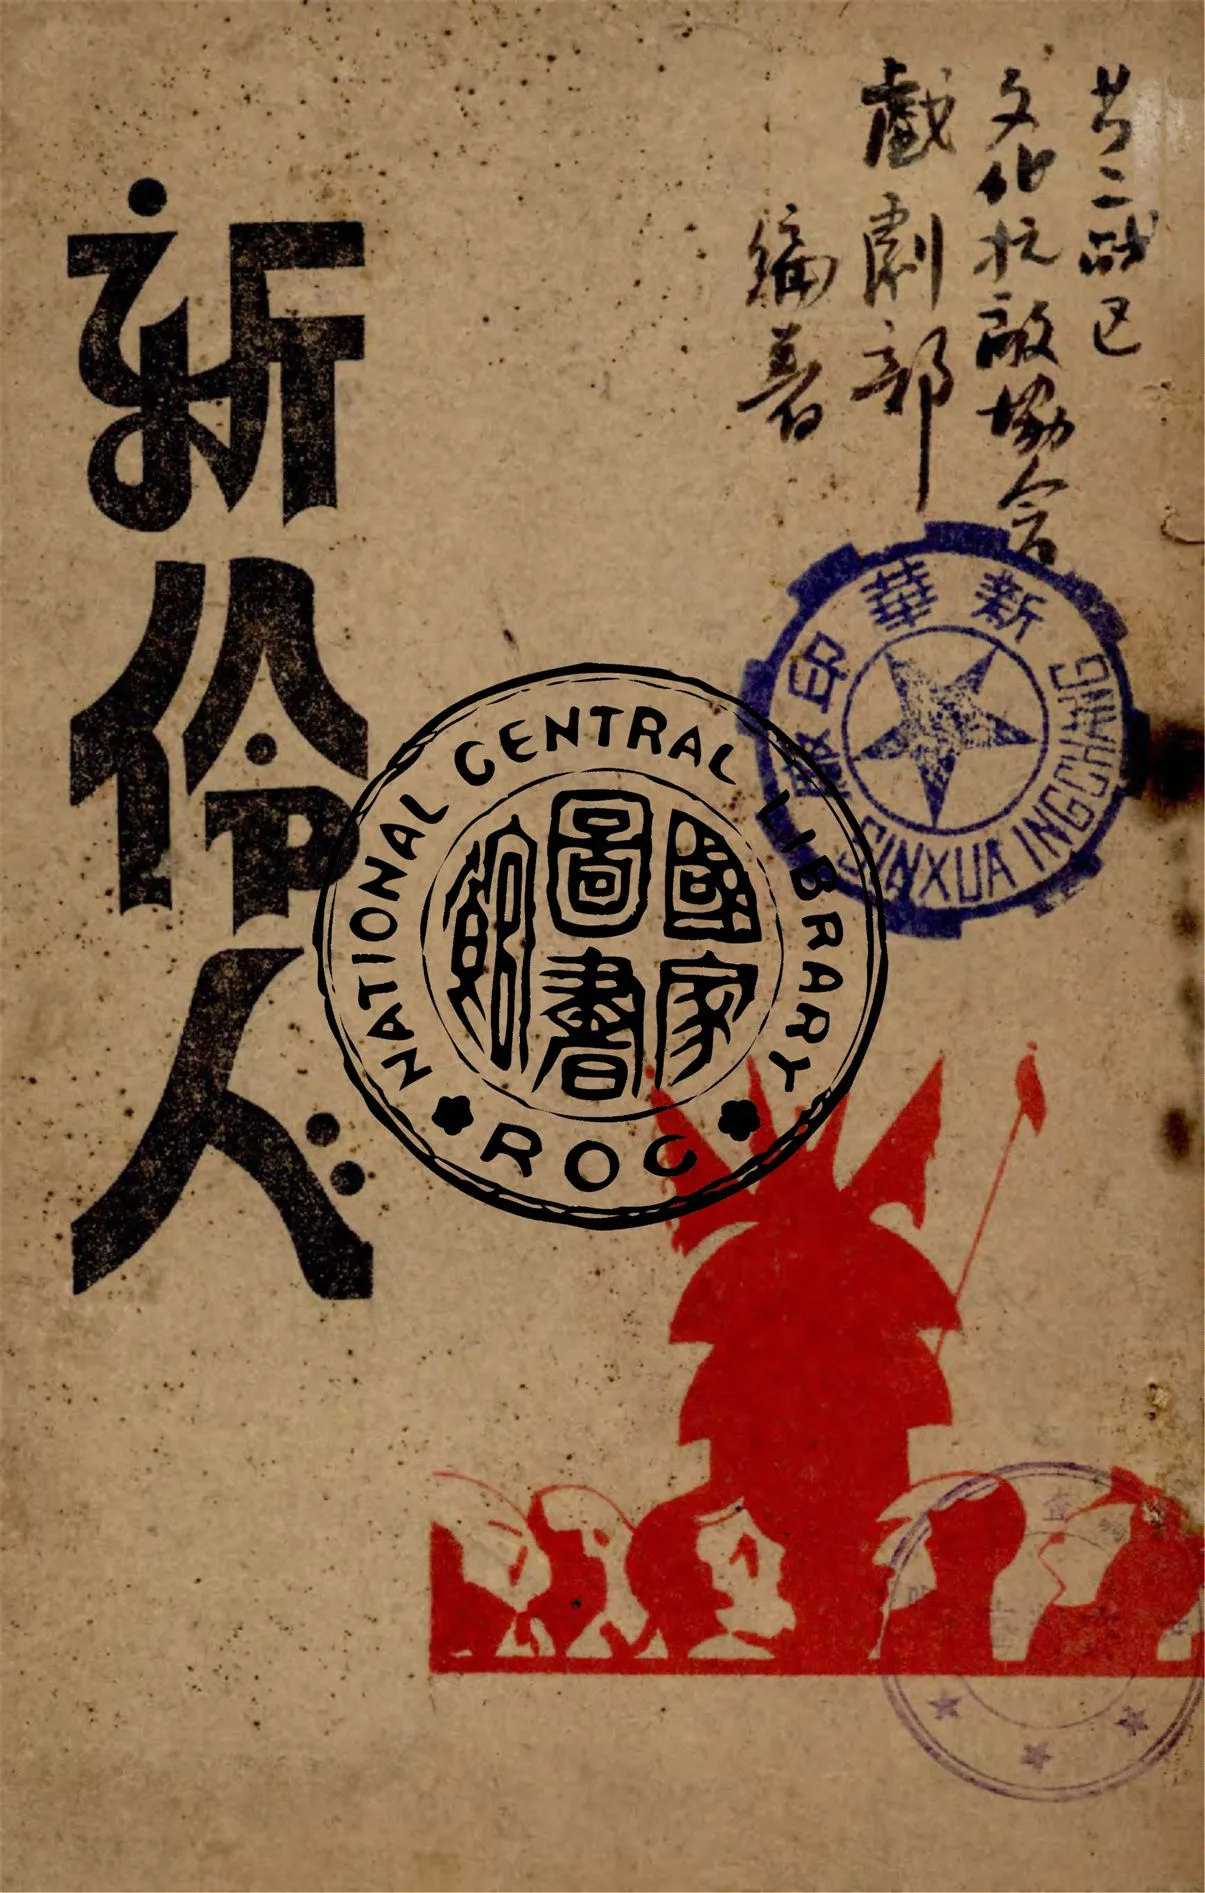 第二战区
文化抗敵協会
戲劇部
編著
新伶人
新華印廠
SINXUA INGCHANG
NATIONAL CENTRAL LIBRARY
國家
圖書
館
ROC